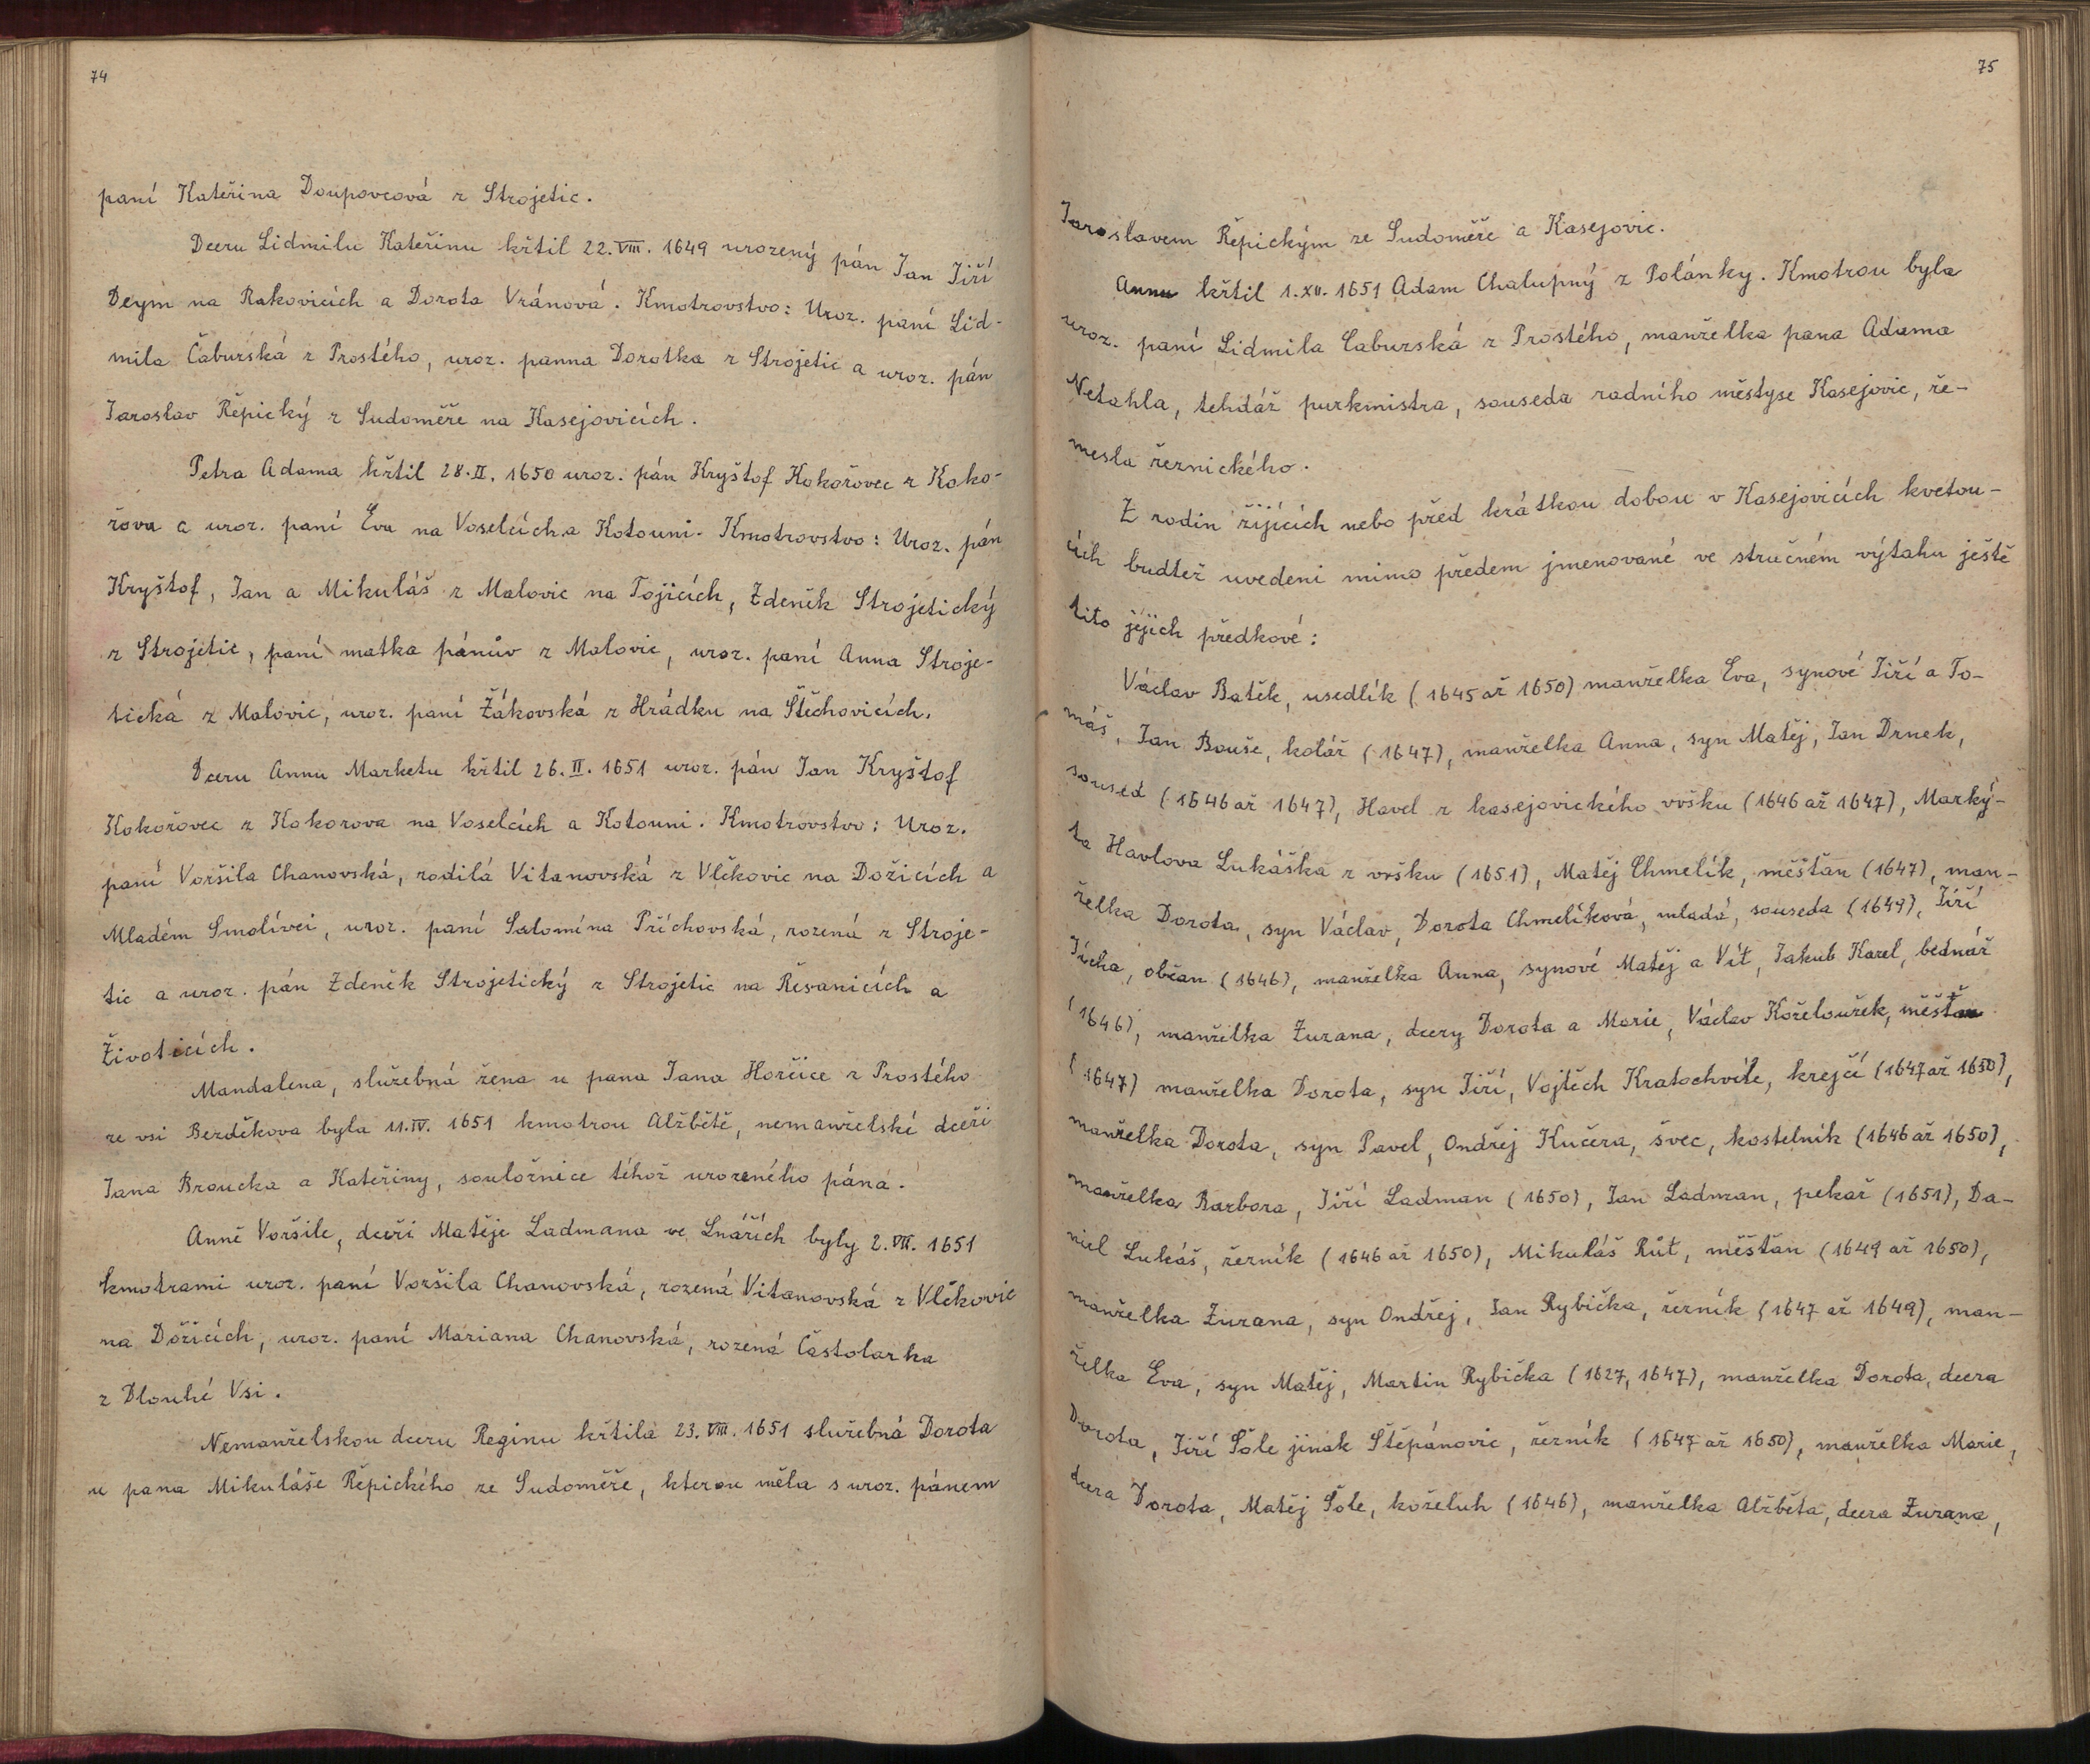 74
paní Kateřina Doupovcová z Strojetic.
Dceru Lidmilu Kateřinu křtil 22.VIII. 1649 urozený pán Jan Jiří
Deym na Rakovicích a Dorota Vránová. Kmotrovstvo: Uroz. paní Lid-
mila Čaburská z Prostého, uroz. panna Dorotka z Strojetic a uroz. pán
Jaroslav Řepický z Sudoměře na Kasejovicích.
Petra Adama křtil 28.II. 1650 uroz. pán Kryštof Kokořovec z Koko-
řova a uroz. paní Eva na Voselcích a Kotouni. Kmotrovstvo: Uroz. pán
Kryštof, Jan a Mikuláš z Malovic na Tojicích, Zdeněk Strojetický
z Strojetic, paní matka pánův z Malovic, uroz. paní Anna Stroje-
tická z Malovic, uroz. paní Žákovská z Hrádku na Štěchovicích.
Dceru Annu Marketu křtil 26.II. 1651 uroz. pán Jan Kryštof
Kokořovec z Kokorova na Voselcích a Kotouni. Kmotrovstvo: Uroz.
paní Voršila Chanovská, rodilá Vitanovská z Vlčkovic na Dožicích a
Mladém Smolivci, uroz. paní Salomína Příchovská, rozená z Stroje-
tic a uroz. pán Zdeněk Strojetický z Strojetic na Řesanicích a
Životicích.
Mandalena, služebná žena u pana Jana Horčice z Prostého
ze vsi Bezděkova byla 11.IV. 1651 kmotrou Alžbětě, nemanželské dceři
Jana Broucka a Kateřiny, souložnice téhož urozeného pána.
Anně Voršile, dceři Matěje Ladmana ve Lnářích byly 2.VII. 1651
kmotrami uroz. paní Voršila Chanovská, rozená Vitanovská z Vlčkovic
na Dožicích, uroz. paní Mariana Chanovská, rozená Častolarka
z Dlouhé Vsi.
Nemanželskou dceru Reginu křtila 23.VIII. 1651 služebná Dorota
u pana Mikuláše Řepického ze Sudoměře, kterou měla s uroz. pánem
75
Jaroslavem Řepickým ze Sudoměře a Kasejovic.
Annu křtil 1.XII. 1651 Adam Chalupný z Polánky. Kmotrou byla
uroz. paní Lidmila Caburská z Prostého, manželka pana Adama
Netahla, tehdáž purkmistra, souseda radního městyse Kasejovic, ře-
mesla řeznického.
Z rodin žijících nebo před krátkou dobou v Kasejovicích kvetou-
cích buďtež uvedeni mimo předem jmenované ve stručném výtahu ještě
tito jejich předkové:
Václav Batěk, usedlík (1645 až 1650) manželka Eva, synové Jiří a To-
máš, Jan Bouše, kolář (1647), manželka Anna, syn Matěj, Jan Drnek,
soused (1646 až 1647), Havel z kasejovického vršku (1646 až 1647), Marký-
ta Havlova Lukáška z vršku (1651), Matěj Chmelík, měšťan (1647), man-
želka Dorota, syn Václav, Dorota Chmelíková, mladá, souseda (1649), Jiří
Jícha, občan (1646), manželka Anna, synové Matěj a Vít, Jakub Karel, bednář
(1646), manželka Zuzana, dcery Dorota a Marie, Václav Koželoužek, měšťan
(1647) manželka Dorota, syn Jiří, Vojtěch Kratochvíle, krejčí (1647 až 1650),
manželka Dorota, syn Pavel, Ondřej Kučera, švec, kostelník (1646 až 1650),
manželka Barbora, Jiří Ladman (1650), Jan Ladman, pekař (1651), Da-
niel Lukáš, řezník (1646 až 1650), Mikuláš Růt, měšťan (1649 až 1650),
manželka Zuzana, syn Ondřej, Jan Rybička, řezník (1647 až 1649), man-
želka Eva, syn Matěj, Martin Rybička (1627, 1647), manželka Dorota, dcera
Dorota, Jiří Šole jinak Štěpánovic, řezník (1647 až 1650), manželka Marie,
dcera Dorota, Matěj Šole, koželuh (1646), manželka Alžběta, dcera Zuzana,